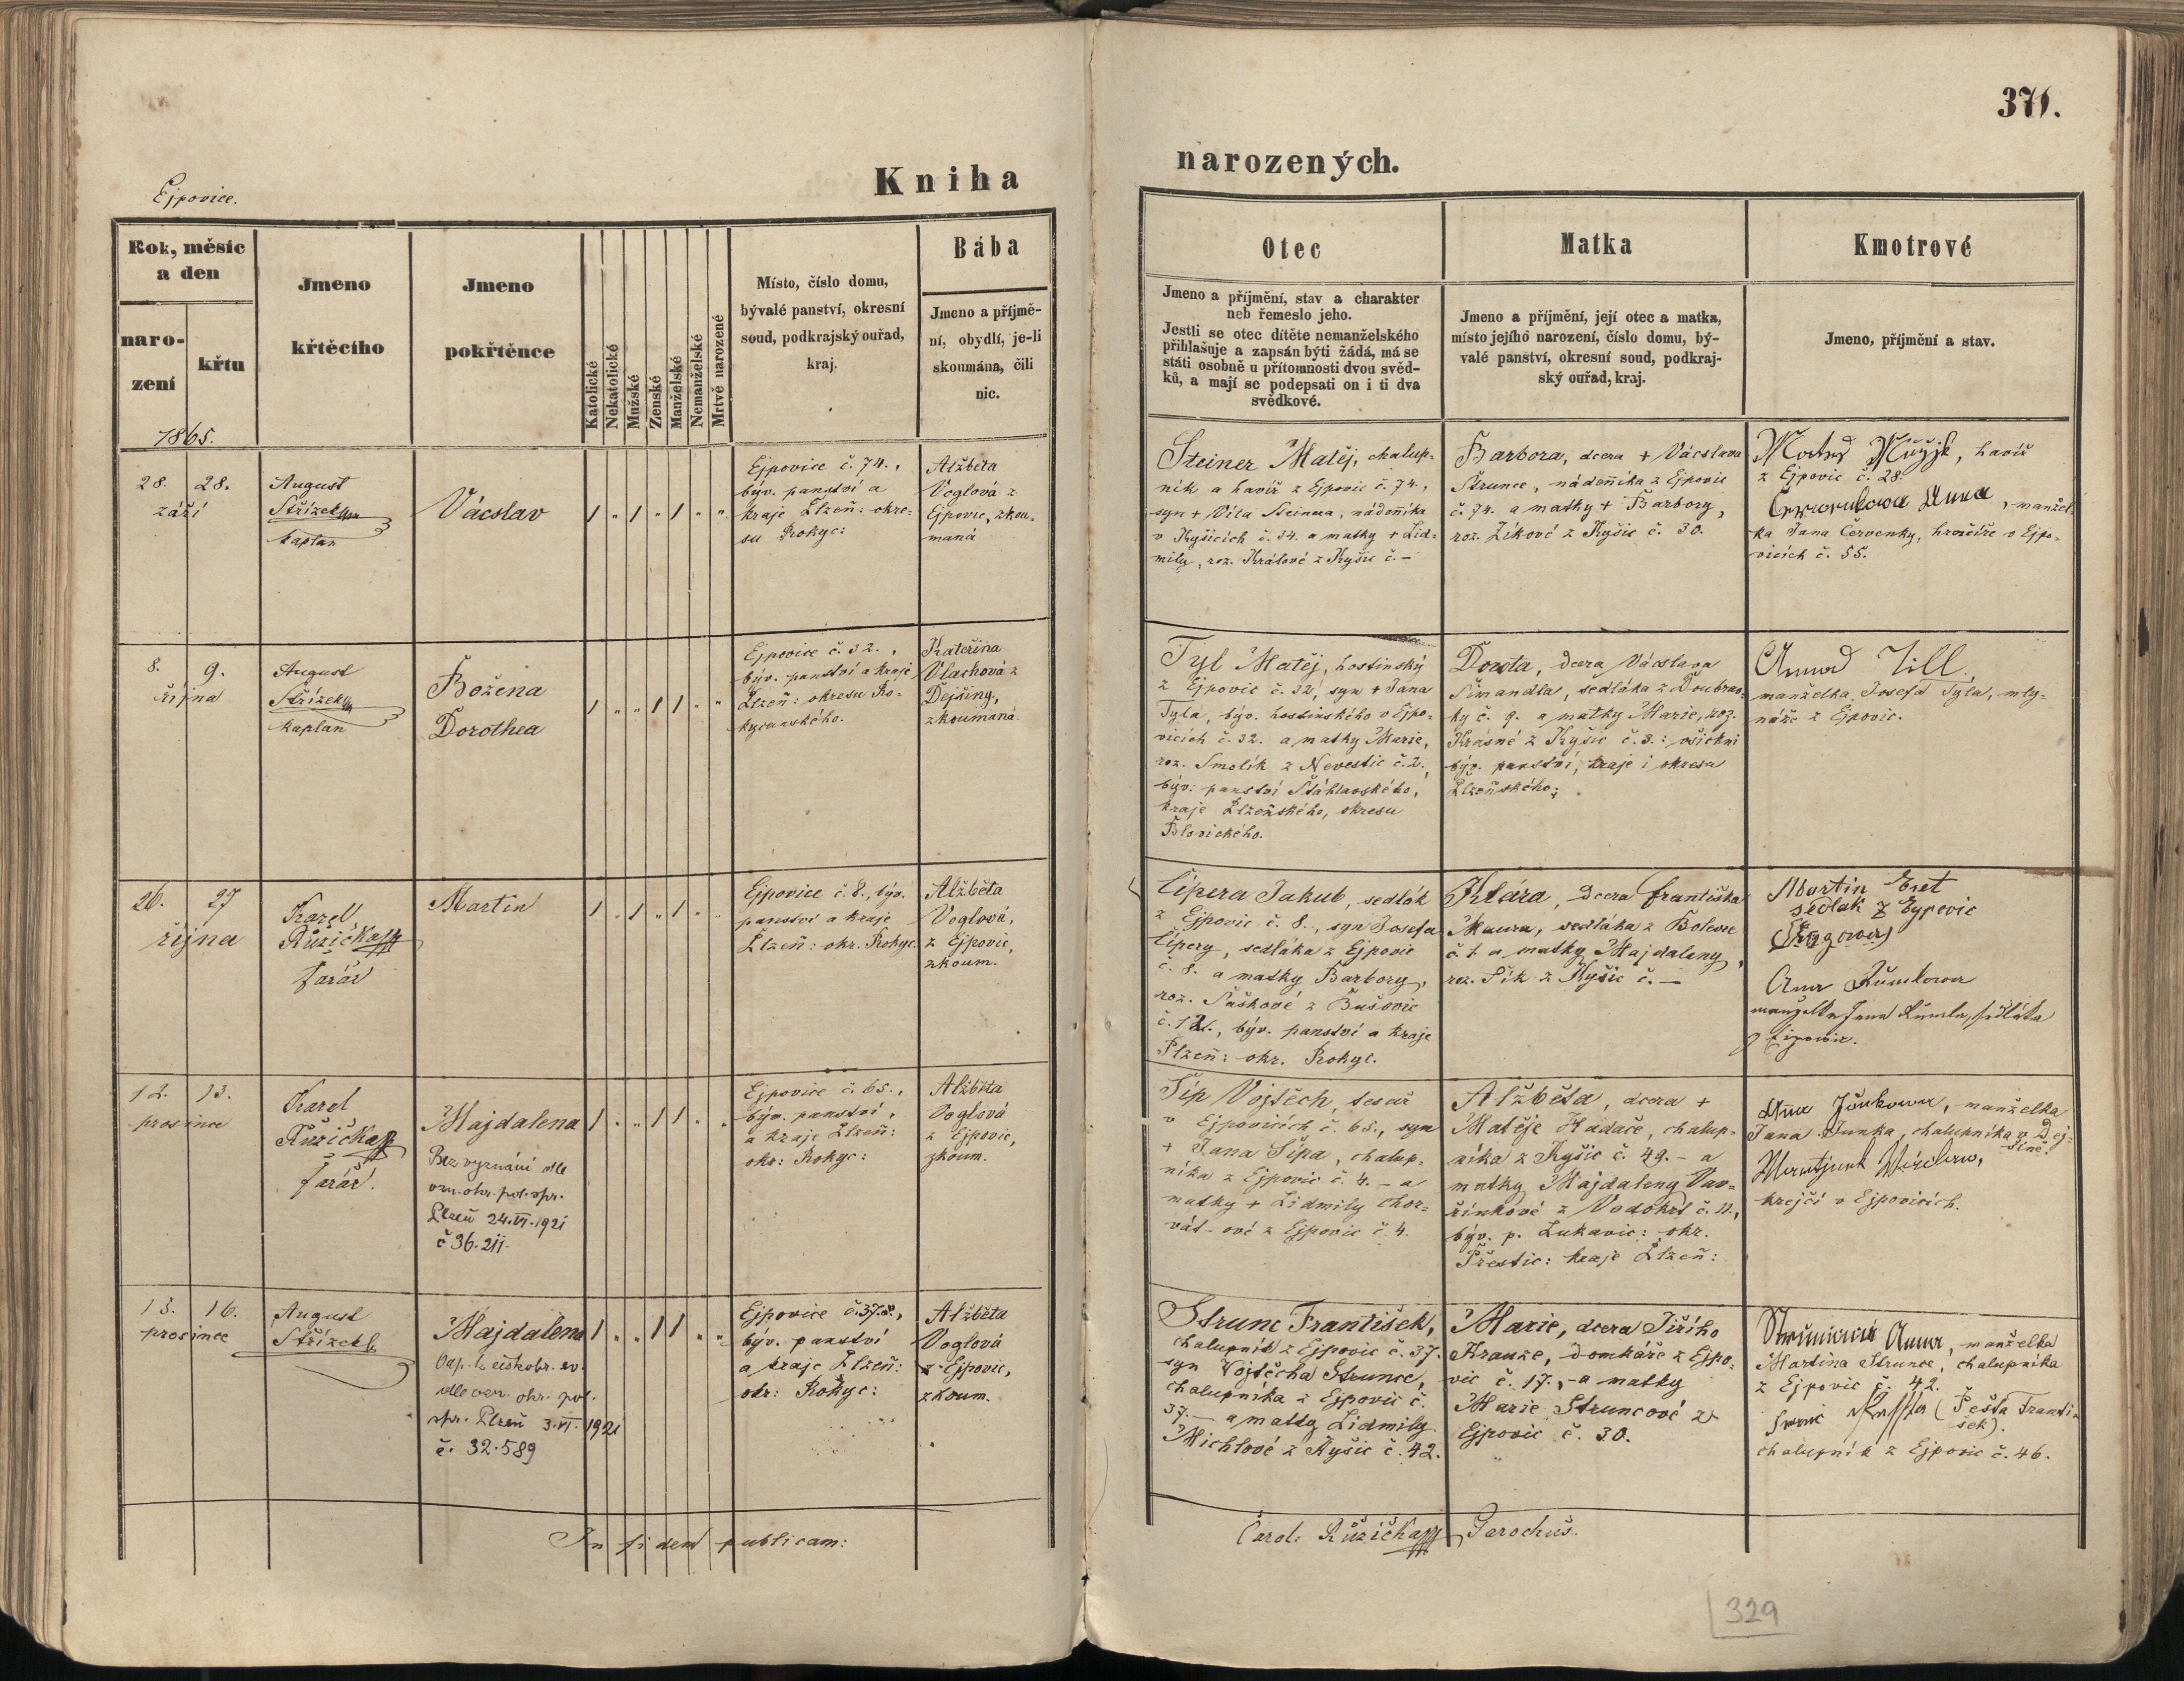 371.
Ejpovice.
Kniha
narozených.
Rok, měsíc
a den
naro-
zení
křtu
Jmeno
křtěcího
Jmeno
pokřtěnce
Katolické
Nekatolické
Mužské
Ženské
Manželské
Nemanželské
Mrtvě narozené
Místo, číslo domu,
bývalé panství, okresní
soud, podkrajský ouřad,
kraj.
Bába
Jmeno a příjmě-
ní, obydlí, je-li
skoumána, čili
nic.
Otec
Jmeno a příjmění, stav a charakter
neb řemeslo jeho.
Jestli se otec dítěte nemanželského
přihlašuje a zapsán býti žádá, má se
státi osobně u přítomnosti dvou svěd-
ků, a mají se podepsati on i ti dva
svědkové.
Matka
Jmeno a příjmění, její otec a matka,
místo jejího narození, číslo domu, bý-
valé panství, okresní soud, podkraj-
ský ouřad, kraj.
Kmotrové
Jmeno, příjmění a stav.
1865.
28. 28.
září
August
Střízek
kaplan
Vácslav
1 „ 1 „ 1 „ „
Ejpovice č. 74.,
býv. panství a
kraje Plzeň: okre-
su Rokyc:
Alžběta
Voglová z
Ejpovic, zkou-
maná
Steiner Matěj, chalup-
ník a havíř z Ejpovic č. 74.,
syn + Víta Steinera, nádeníka
v Kyšicích č. 34. a matky + Lid-
mily, roz. Králové z Kyšic č. –
Barbora, dcera + Vácslava
Strunce, nádeníka z Ejpovic
č. 74. a matky + Barbory,
roz. Zíkové z Kyšic č. 30.
, havíř
z Ejpovic č. 28.
Anna, manžel-
ka Jana Červenky, hrnčíře v Ejpo-
vicích č. 55.
8. 9.
října
August
Střízek
kaplan
Božena
Dorothea
1 „ „ 1 1 „ „
Ejpovice č. 32.,
býv. panství a kraje
Plzeň: okresu Ro-
kycanského.
Kateřina
Vlachová z
Dejšiny,
zkoumaná.
Tyl Matěj, hostinský
z Ejpovic č. 32, syn + Jana
Tyla, býv. hostinského v Ejpo-
vicích č. 32. a matky Marie,
roz. Smolík z Nevestic č. 2.,
býv: panství Šťáhlavského,
kraje Plzeňského, okresu
Blovického.
Dorota, dcera Vácslava
Šimandla, sedláka z Doubrav-
ky č. 9. a matky Marie, roz.
Krásné z Kyšic č. 3.: všichni
býv. panství, kraje i okresu
Plzeňského.
Anna Till,
manželka Josefa Tyla, mly-
náře z Ejpovic.
26. 27
října
Karel
Růžička
farář
Martin
1 „ 1 „ 1 „ „
Ejpovice č. 8., býv.
panství a kraje
Plzeň: okr. Rokyc.
Alžběta
Voglová,
z Ejpovic,
zkoum.
Cipera Jakub, sedlák
z Ejpovic č. 8., syn Josefa
Cipery, sedláka z Ejpovic
č. 8. a matky Barbory,
roz. Saškové z Bušovic
č. 12., býv. panství a kraje
Plzeň: okr. Rokyc.
Klára, dcera Františka
Maura, sedláka z Bolevce
č. 1. a matky Majdaleny,
roz. Sík z Kyšic č. –
Martin
sedlak z Eypovic
z Eipowic.
12. 13.
prosince
Karel
Růžička
farář.
Majdalena
Bez vyznání dle
ozn. okr. pol. spr.
Plzeň 24.VI.1921
č 36.211.
1 „ „ 1 1 „ „
Ejpovice č. 65.,
býv. panství,
a kraje Plzeň:
okr: Rokyc:
Alžběta
Voglová
z Ejpovic,
zkoum.
Síp Vojtěch, tesař
v Ejpovicích č. 65., syn
+ Jana Šípa, chalup-
níka z Ejpovic č. 4. – a
matky + Lidmily Chor-
vát-ové z Ejpovic č. 4.
Alžběta, dcera +
Matěje Kadače, chalup-
níka z Kyšic č. 49. – a
matky Majdaleny Vav-
řínkové z Vodokrt č. 11.,
býv. p. Lukavic: okr.
Přestic: kraje Plzeň:
Anna Junkowa, manželka
Jana Junka, chalupníka v Dej-
šině.
krejčí v Ejpovicích.
13. 16.
prosince
August
Střízek
Majdalena
Odp. k čískobr. ev.
dle ozn. okr. pol.
spr. Plzeň 3.VI.1921
č. 32.589
1 „ „ 1 1 „ „
Ejpovice č. 37.,
býv. panství
a kraje Plzeň:
okr: Rokyc:
Alžběta
Voglová
z Ejpovic,
zkoum.
Strunc František,
chalupník z Ejpovic č. 37.
syn Vojtěcha Strunce,
chalupníka z Ejpovic č.
37. – a matky Lidmily
Michlové z Kyšic č. 42.
Marie, dcera Jiřího
Krauze, domkáře z Ejpo-
vic č. 17., – a matky
Marie Struncové z
Ejpovic č. 30.
Anna, manželka
Martina Strunce, chalupníka
z Ejpovic č. 42.
(Pešta Franti-
šek).
chalupník z Ejpovic č. 46.
In fidem publicam:
Carol. Růžička Parochus.
329